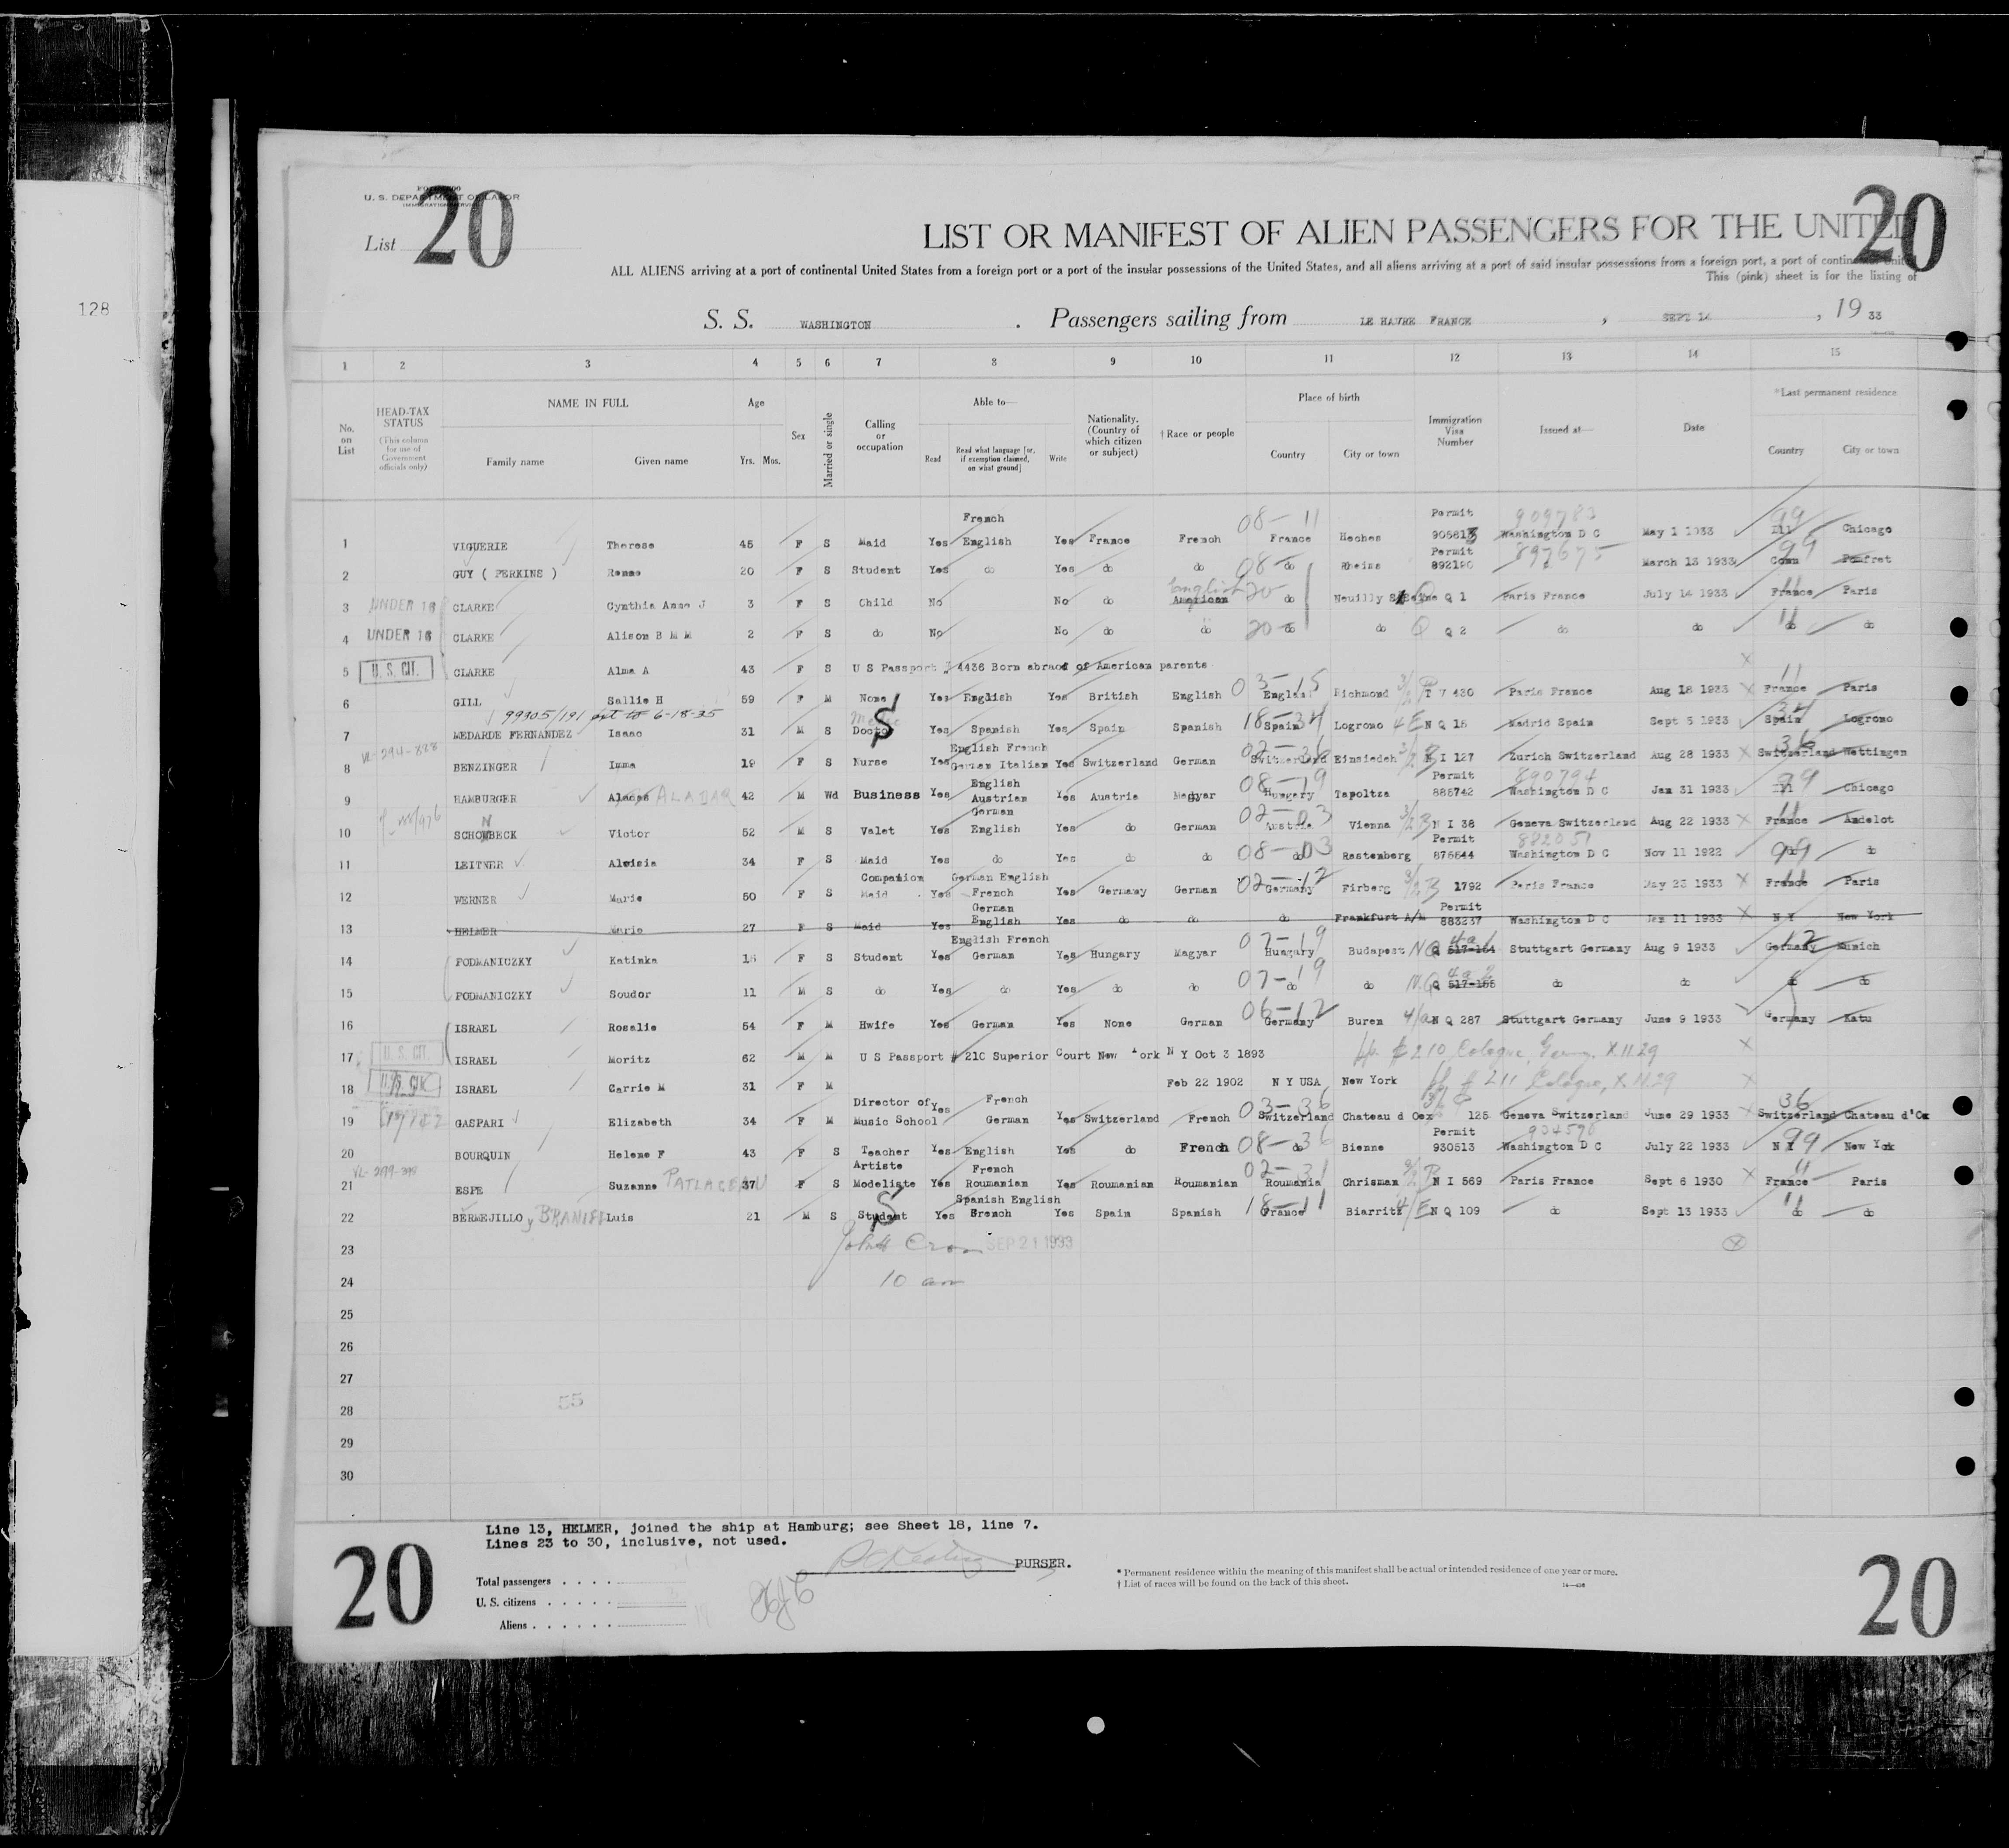 128
20
20
FORM 500
U. S. DEPARTMENT OF LABOR
IMMIGRATION SERVICE
List
LIST OR MANIFEST OF ALIEN PASSENGERS FOR THE UNITED
ALL ALIENS arriving at a port of continental United States from a foreign port or a port of the insular possessions of the United States, and all aliens arriving at a port of said insular possessions from a foreign port, a port of continental Unit
This (pink) sheet is for the listing of
S. S. WASHINGTON . Passengers sailing from LE HAVRE FRANCE , SEPT 14 , 19 33
1 2 3 4 5 6 7 8 9 10 11 12 13 14 15
No. on List
HEAD-TAX STATUS (This column for use of Government officials only)
NAME IN FULL Family name Given name
Age Yrs. Mos.
Sex
Married or single
Calling or occupation
Able to— Read Read what language [or, if exemption claimed, on what ground] Write
Nationality. (Country of which citizen or subject)
† Race or people
Place of birth Country City or town
Immigration Visa Number
Issued at—
Date
* Last permanent residence Country City or town
French 08-11 Permit 909783 99
1 VIGUERIE Therese 45 F S Maid Yes English Yes France French France Heches 905813 Washington D C May 1 1933 Ill Chicago
Permit 897675 99
2 GUY ( PERKINS ) Renee 20 F S Student Yes do Yes do do 08- do Rheims 892190 March 13 1933 Conn Pomfret
English 20
3 UNDER 16 CLARKE Cynthia Anne J 3 F S Child No No do American do Neuilly S/Seine Q 1 Paris France July 14 1933 France Paris
4 UNDER 16 CLARKE Alison B M M 2 F S do No No do do 20- do do Q 2 do do do do
5 U. S. CIT. CLARKE Alma A 43 F S U S Passport # 4436 Born abraod of American parents
6 GILL Sallie H 59 F M None Yes English Yes British English 03-15 England Richmond 3/2 B T 7 430 Paris France Aug 18 1933 France Paris
99305/191 6-18-35
7 MEDARDE FERNANDEZ Isaac 31 M S Doctor Yes Spanish Yes Spain Spanish 18-34 Spain Logrono 4 E N Q 15 Madrid Spain Sept 5 1933 Spain Logrono
VL-294-828 English French 02-36 36
8 BENZINGER Imma 19 F S Nurse Yes German Italian Yes Switzerland German Switzerland Einsiedeh 3/2 B N I 127 Zurich Switzerland Aug 28 1933 Switzerland Wettingen
English 08-19 Permit 890794 99
9 HAMBURGER ALADAR 42 M Wd Business Yes Austrian Yes Austria Magyar Hungary Tapoltza 886742 Washington D C Jan 31 1933 Ill Chicago
German 02-03 11
10 SCHONBECK Victor 52 M S Valet Yes English Yes do German Austria Vienna 3/2 B N I 38 Geneva Switzerland Aug 22 1933 France Andelot
Permit 882051
11 LEITNER Aloisia 34 F S Maid Yes do Yes do do 08-03 do Rastenberg 875644 Washington D C Nov 11 1922 99 do do
Companion German English
12 WERNER Marie 50 F S Maid Yes French Yes Germany German 02-12 Germany Firberg 3/2 B 1792 Paris France May 23 1933 France Paris
German Permit
13 HELMER Marie 27 F S Maid Yes English Yes do do do Frankfurt A/M 883237 Washington D C Jan 11 1933 N Y New York
English French 07-19 12
14 PODMANICZKY Katinka 15 F S Student Yes German Yes Hungary Magyar Hungary Budapest N Q 517-154 Stuttgart Germany Aug 9 1933 Germany Munich
15 PODMANICZKY Soudor 11 M S do Yes do Yes do do 07-19 do do N.Q 517-155 do do do do
16 ISRAEL Rosalie 54 F M Hwife Yes German Yes None German 06-12 Germany Buren 4/a N Q 287 Stuttgart Germany June 9 1933 Germany Katu
17 U. S. CIT. ISRAEL Moritz 62 M M U S Passport # 210 Superior Court New York N Y Oct 3 1893 #210 Cologne, Germ. X.11.29
18 U. S. CIT. ISRAEL Carrie M 31 F M Feb 22 1902 N Y USA New York # 211 Cologne, X.11.29
Director of Yes French 03-36 36
19 GASPARI Elizabeth 34 F M Music School German Yes Switzerland French Switzerland Chateau d Oex 125 Geneva Switzerland June 29 1933 Switzerland Chateau d'Ox
Permit 99
20 BOURQUIN Helene F 43 F S Teacher Yes English Yes do French 08-36 do Bienne 930513 Washington D C July 22 1933 N Y New York
Artiste French 02-31 11
21 ESPE Suzanne PATLAGEANU 37 F S Modeliste Yes Roumanian Yes Roumanian Roumanian Roumania Chrisman 3/2 B N I 569 Paris France Sept 6 1930 France Paris
Spanish English 18-11 11
22 BERMEJILLO y BRANIFF Luis 21 M S Student Yes Brench Yes Spain Spanish France Biarritz 4/E N Q 109 do Sept 13 1933 do do
23 SEP 21 1933
24 10 am
25
26
27
28 55
29
30
Line 13, HELMER, joined the ship at Hamburg; see Sheet 18, line 7.
Lines 23 to 30, inclusive, not used.
PURSER.
Total passengers . . . .
U. S. citizens . . . . .
Aliens . . . . . .
* Permanent residence within the meaning of this manifest shall be actual or intended residence of one year or more.
† List of races will be found on the back of this sheet.
20
20